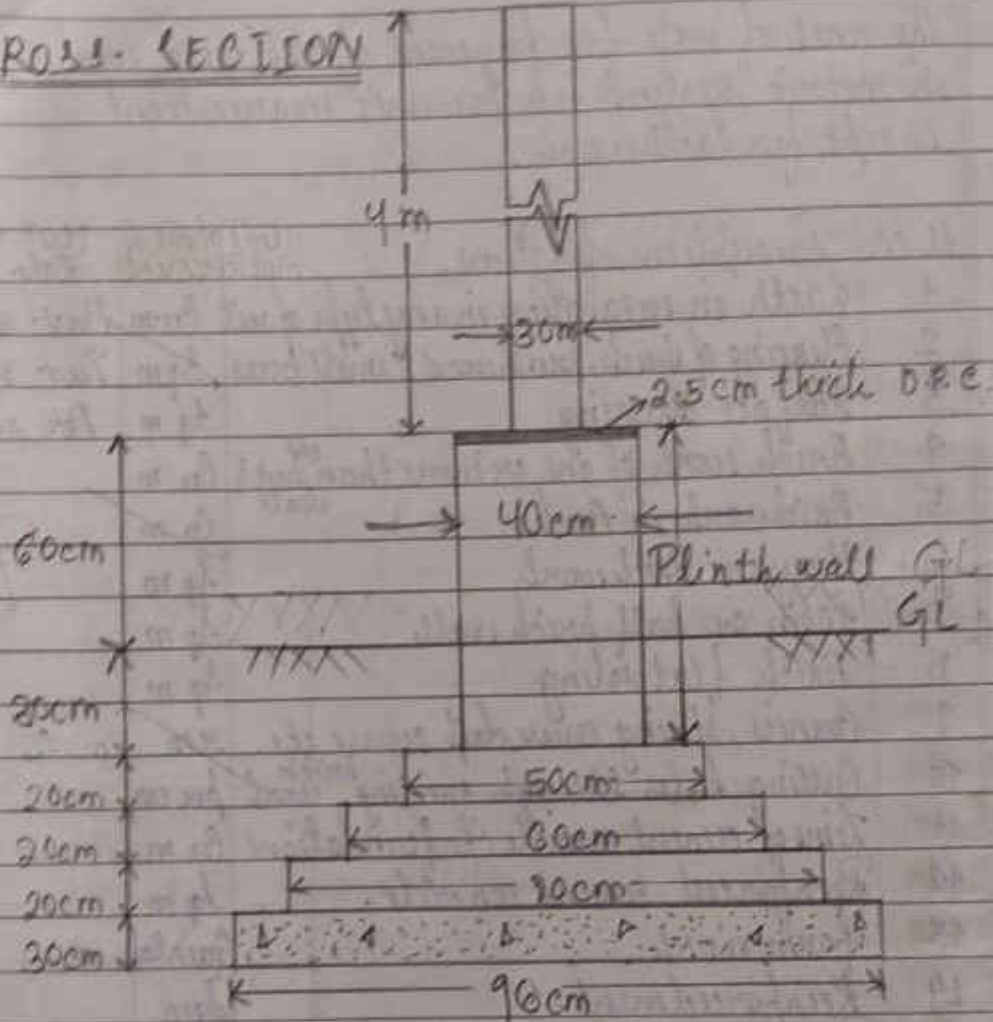 ROSS. SECTION
4 m
30m
2.5 cm thick D.P.C
60cm
40cm
Plinth wall GL
GL
80cm
20cm
50cm
20cm
60cm
20cm
80cm
30cm
90cm